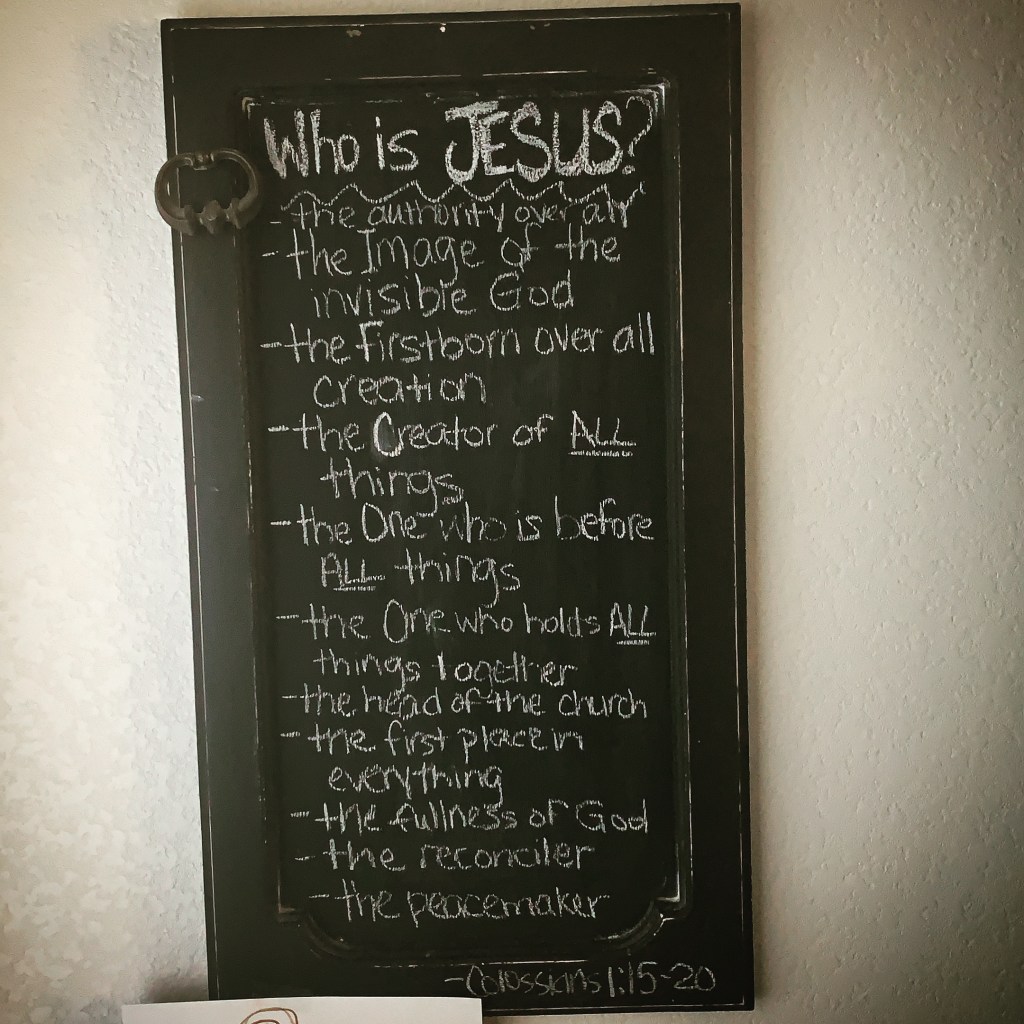 Who is JESUS?
- the authority over all
- the Image of the
invisible God
- the firstborn over all
creation
- the Creator of ALL
things
- the One who is before
ALL things
- the One who holds ALL
things together
- the head of the church
- the first place in
everything
- the fullness of God
- the reconciler
- the peacemaker
- Colossians 1:15-20